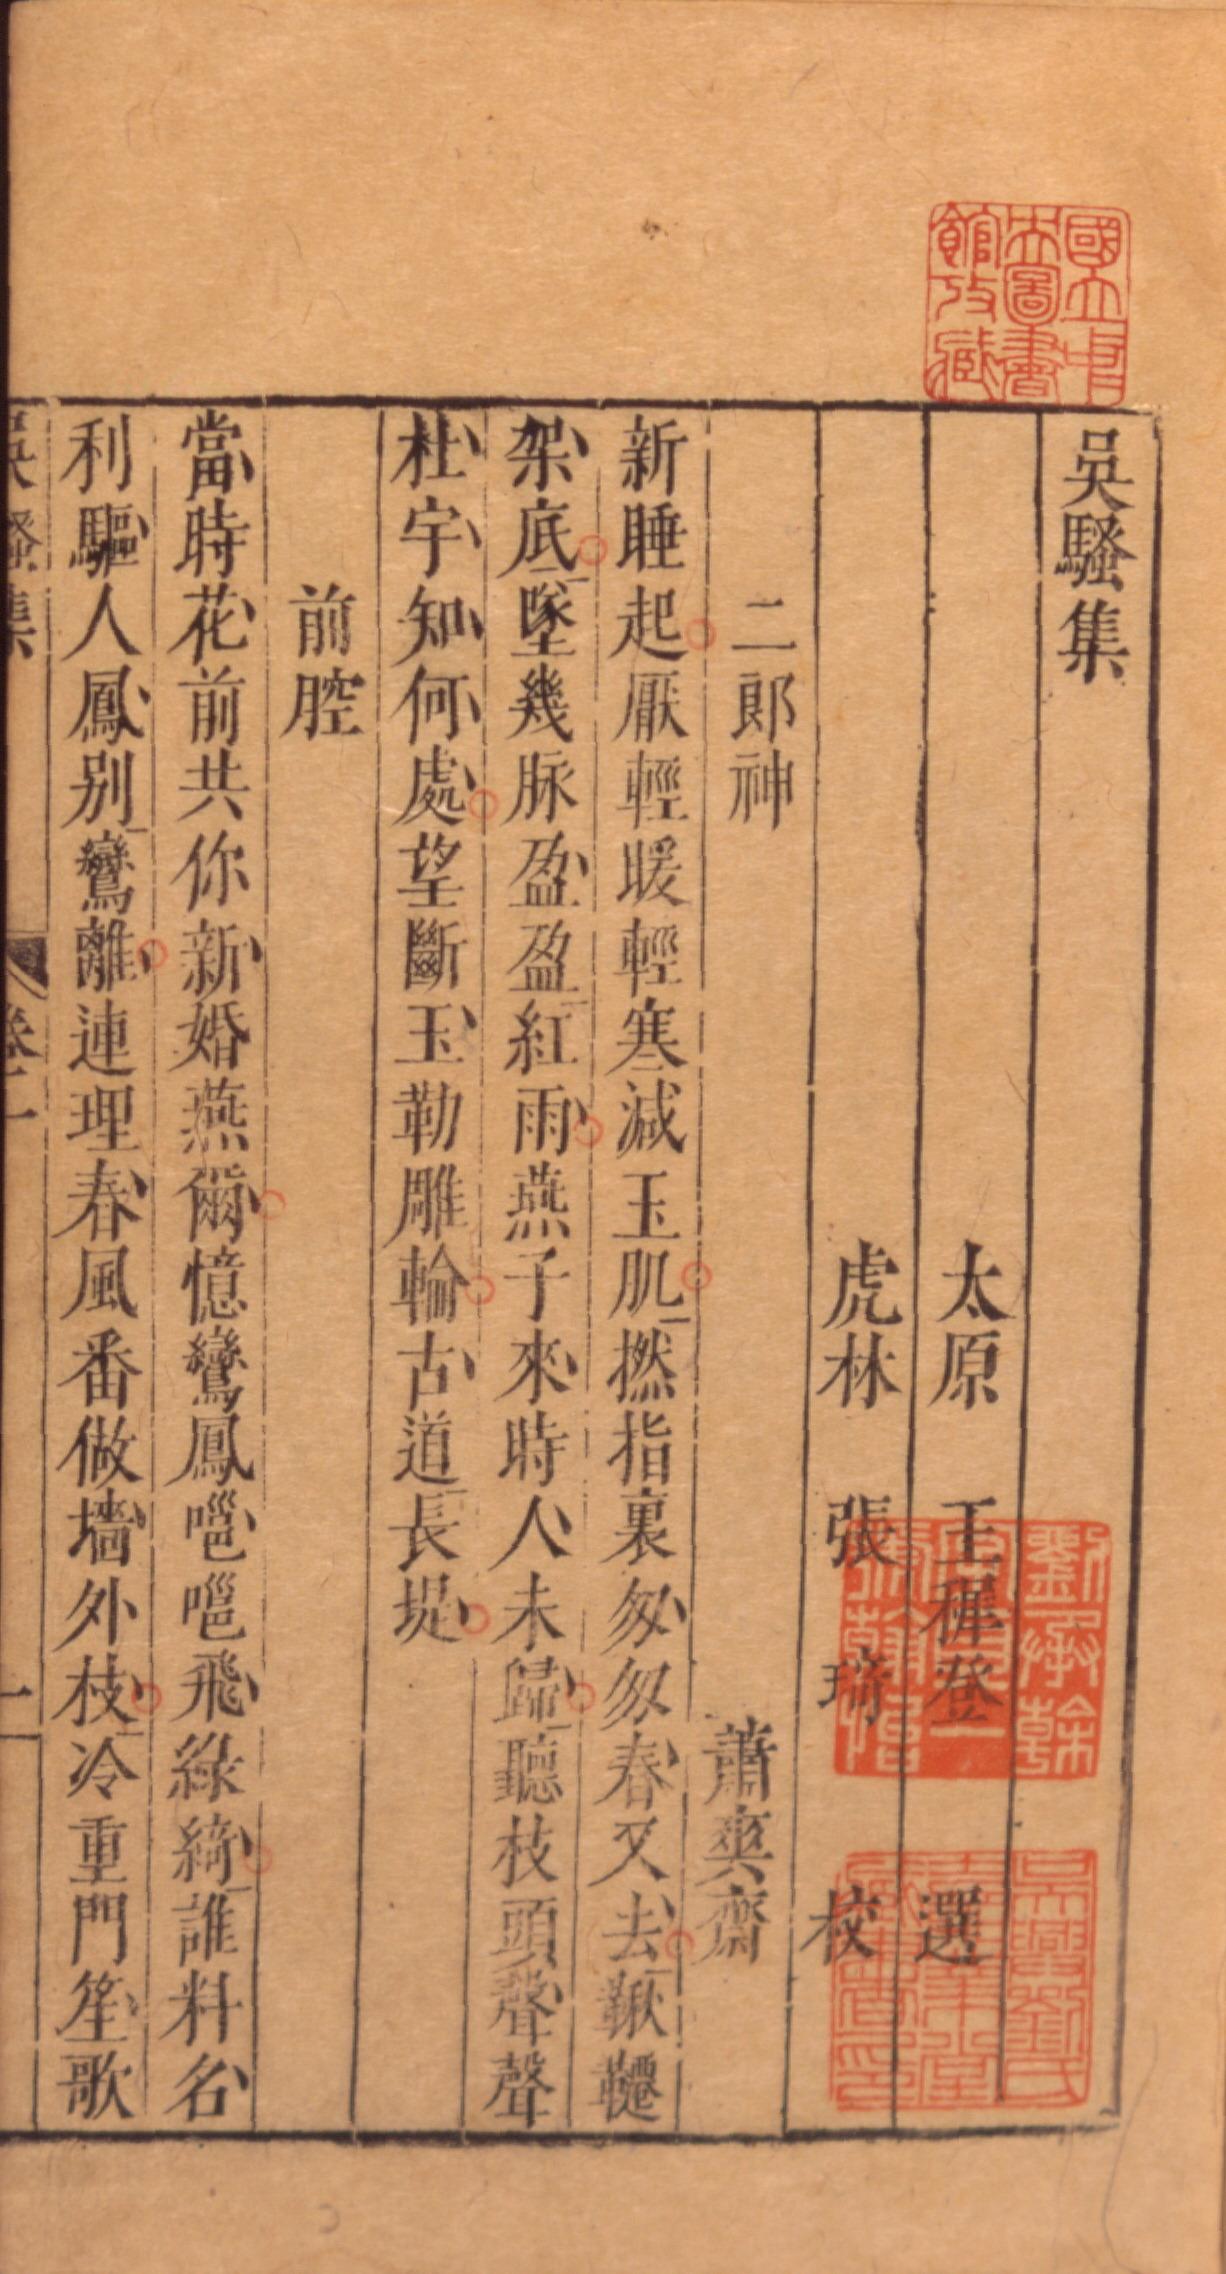 吳騷集
太原 王穉登 選
虎林 張琦 校
二郎神 蕭爽齋
新睡起厭輕暖輕寒減玉肌撚指裏匆匆春又去鞦韆
架底墜幾脉盈盈紅雨燕子來時人未歸聽枝頭聲聲
杜宇知何處望斷玉勒雕輪古道長堤
前腔
當時花前共你新婚燕爾憶鸞鳳嗈嗈飛綠綺誰料名
利驅人鳳別鸞離連理春風番做墻外枝冷重門笙歌
吳騷集 卷一 一
國立中央圖書館收藏
劉承幹字貞一號翰怡
吳興劉氏嘉業堂藏書印